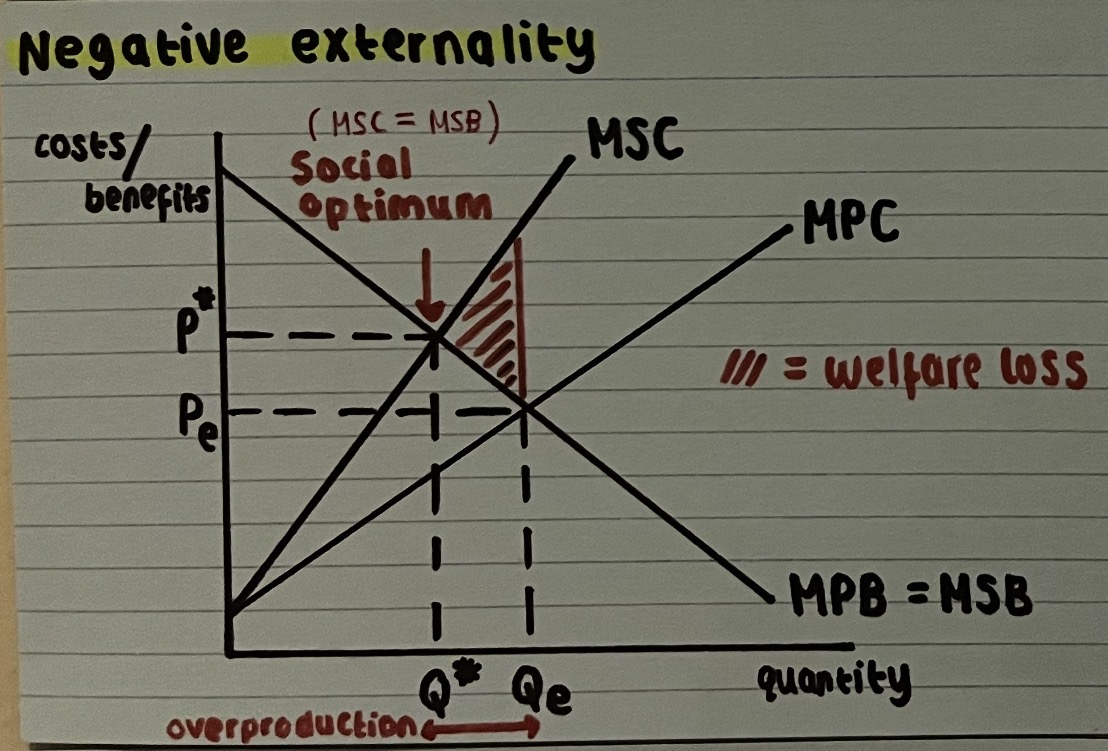 Negative externality
costs/
benefits
(MSC = MSB)
Social
optimum
MSC
MPC
P*
Pe
/// = welfare loss
MPB = MSB
Q*
Qe
quantity
overproduction